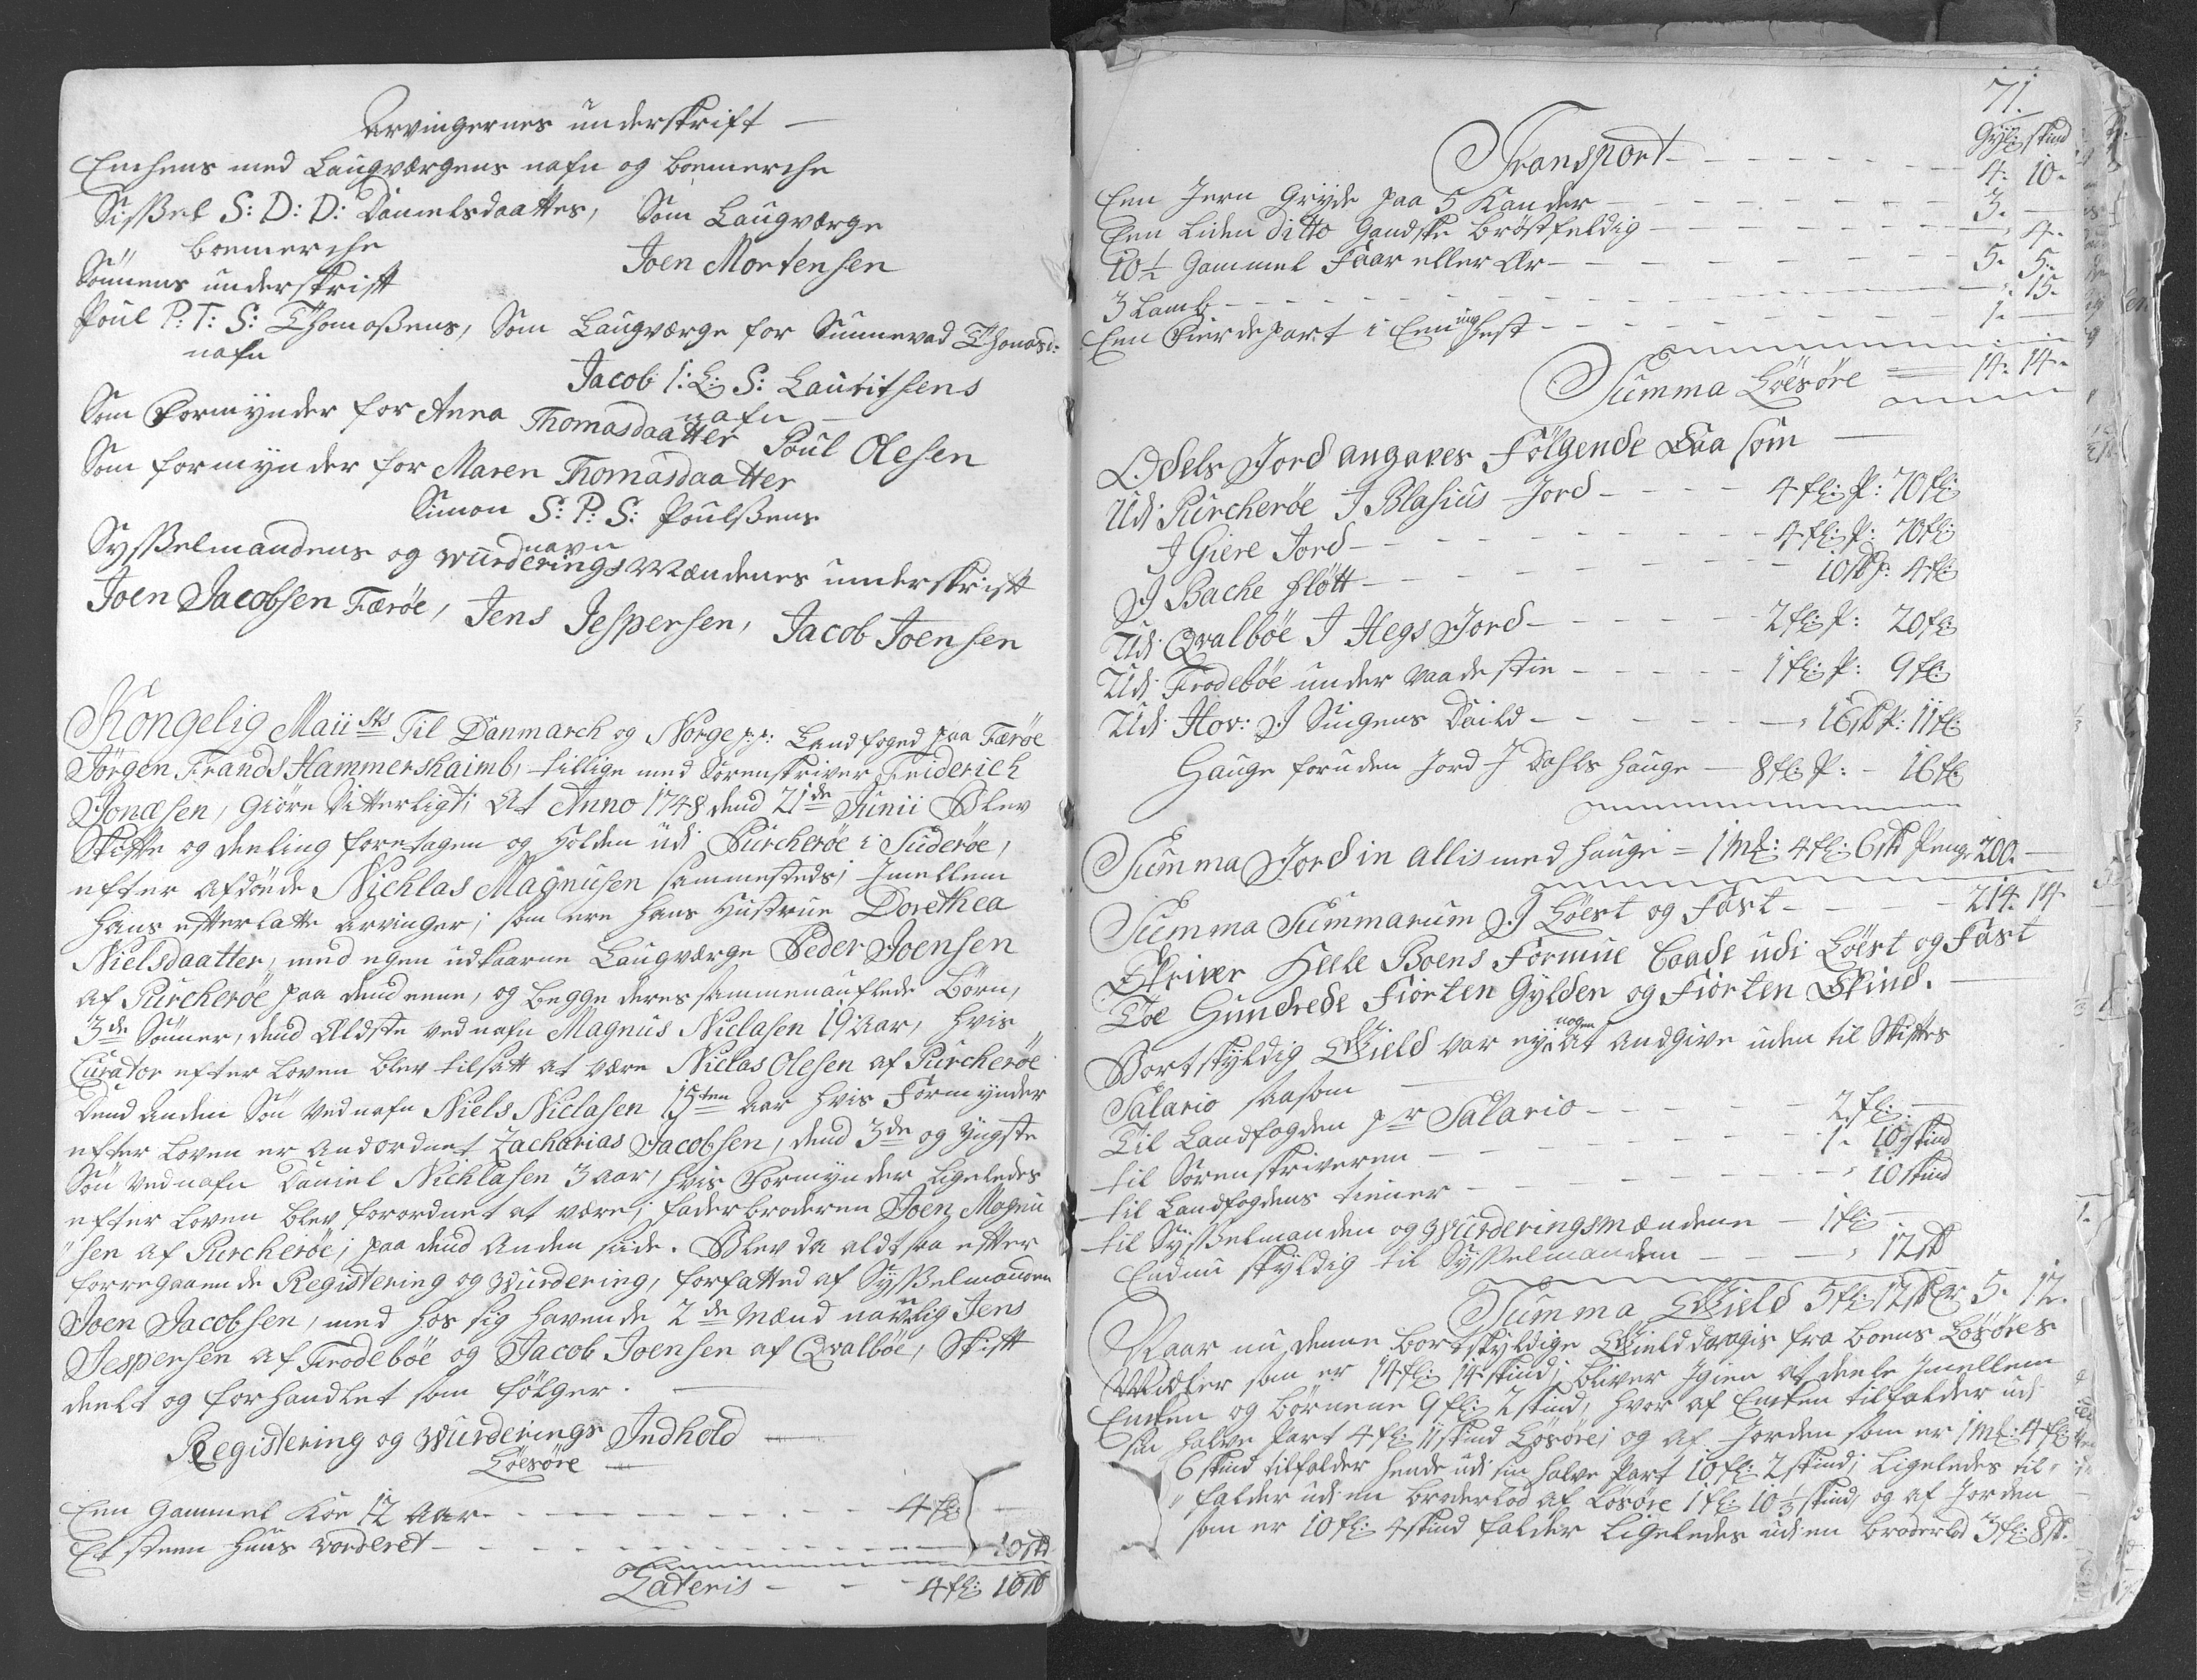 Arvingernes underskrift —
Enchens med Laugværgens nafn og boemerche
Sissel S: D: D: Danielsdaatter, Som Laugværge
boemerche
Joen Mortensen
Sönnens underskrift
Poul P: T: S: Thomassens, Som Laugværge for Sunnevad Thomasd:
nafn
Jacob I: L: S: Lauritsens
nafn —
Som Formÿnder for Anna Thomasdaatter
Poul Olesen
Som formÿnder for Maren Thomasdaatter
Simon S: P: S: Poulssens
navn
Sysselmandens og wurderings Mændenes underskrift
Joen Jacobsen Færöe, Jens Jespersen, Jacob Joensen
Kongelig Maii sts Til Danmarch og Norge pp: Landfoged paa Færöe
Jörgen Frands Hammershaimb, tillige med Sorenskriver Friderich
Jonæsen, Giöre Vitterligt; At Anno 1748 dend 21de Junii Blev
Skifte og deeling foretagen og holden udi Purcheröe i Suderöe,
efter afdöde Nicklas Magnusen sammesteds, Jmellem
hans efterlatte arvinger; som ere hans Hustrue Dorethea
Nielsdaatter, med egen udkaarne Laugværge Peder Joensen
af Purcheröe paa dend eene, og begge deres sammenauflede Börn,
3de Sönner, dend Ældste ved nafn Magnus Niclasen 19 Aar, hvis
Curator efter Loven blev tilsatt at være Niclas Olesen af Purcheröe
Dend Anden Sön ved nafn Niels Niclasen 15ten Aar hvis Formÿnder
efter Loven er Andordnet Zacharias Jacobsen, dend 3de og Yngste
Sön ved nafn Daniel Nicklasen 3 Aar, hvis Formÿnder ligeledes
efter Loven blev forordnet at være, faderbroderen Joen Magnu
" sen af Purcheröe; paa dend Anden siide. Blev da aldt saa efter
forregaaende Registering og Wurdering, forfatted af Sysselmanden
Joen Jacobsen, med hos sig havende 2de Mænd navnlig Jens
Jespersen af Frodeböe og Jacob Joensen af Qvalböe, Skift
deelt og forhandlet som fölger. —
Registering og Wurderings Indhold —
Löesöre —
Een Gammel Koe 12 Aar - - - 4 fl: —
Et steen huus vorderet - - - 10 sk
Lateris - - - 4 fl: 10 sk
71.
Gyl: skind
Transport - - - 4. 10.
Een Jern Grÿde paa 5 Kander - - - 3. —
Een Liden ditto Gandske bröstfeldig - - - " 4.
10½ Gammel Faar eller Ær - - - 5. 5.
3 Lamb - - - " 15.
Een Fierdepart i Een ung Hest - - - 1. —
Summa Löesöre = 14. 14.
Odels Jord angaves Fölgende Saa som —
Udi Purcheröe J Blasius Jord - - - 4 fl: P: 70 fl:
J Giere Jord - - - 4 fl: P: 70 fl:
J Bache Flött - - - 10 sk P: 4 fl:
Udi Qvalböe J Hegs Jord - - - 2 fl: P: 20 fl:
Udi Frodeböe under Vaadestin - - - 1 fl: P: 9 fl:
Udi Hov: J Suigens Daild - - - " 16 sk P: 11 fl:
Hauge foruden Jord J Dahls Hauge — 8 fl: P: - 16 fl:
Summa Jord in allis med Hauge = 1 Mk: 4 fl: 6 sk Penge 200. —
Summa Summarum J Löest og Fast - - - 214. 14
Skriver Heele Boens Formue Baade udi Löest og Fast
Toe Hundrede Fiorten Gylden og Fiorten Skind. —
Bortskÿldig Gield var eÿ nogen At Andgive uden til Skiftes
Salario saasom —
Til Landfogden pr Salario - - - 2 fl: —
til Sorenskriveren - - - 1. 10 skind
til Landfogdens tiener - - - " 10 skind
til Sysselmanden og Wurderingsmændene — 1 fl: —
Endnu skÿldig til Sysselmanden - - - " 12 sk
Summa Gield 5 fl: 12 sk er 5. 12.
Naar nu denne bortskÿldige Gield dragis fra boens Lösöres
Midler som er 14 fl: 14 skind, bliver Jgien at deele Jmellem
Encken og börnene 9 fl: 2 skind, hvor af Encken tilfalder udi
sin halve part 4 fl: 11 skind Lösöre; og af Jorden som er 1 Mk: 4 fl:
6 skind tilfalder hende udi sin halve Part 10 fl: 2 skind; Ligeledes til
" falder udi en broderlod af Lösöre 1 fl: 10⅓ skind, og af Jorden
som er 10 fl: 4 skind falder Ligeledes udi en broderlod 3 fl: 8 sk.